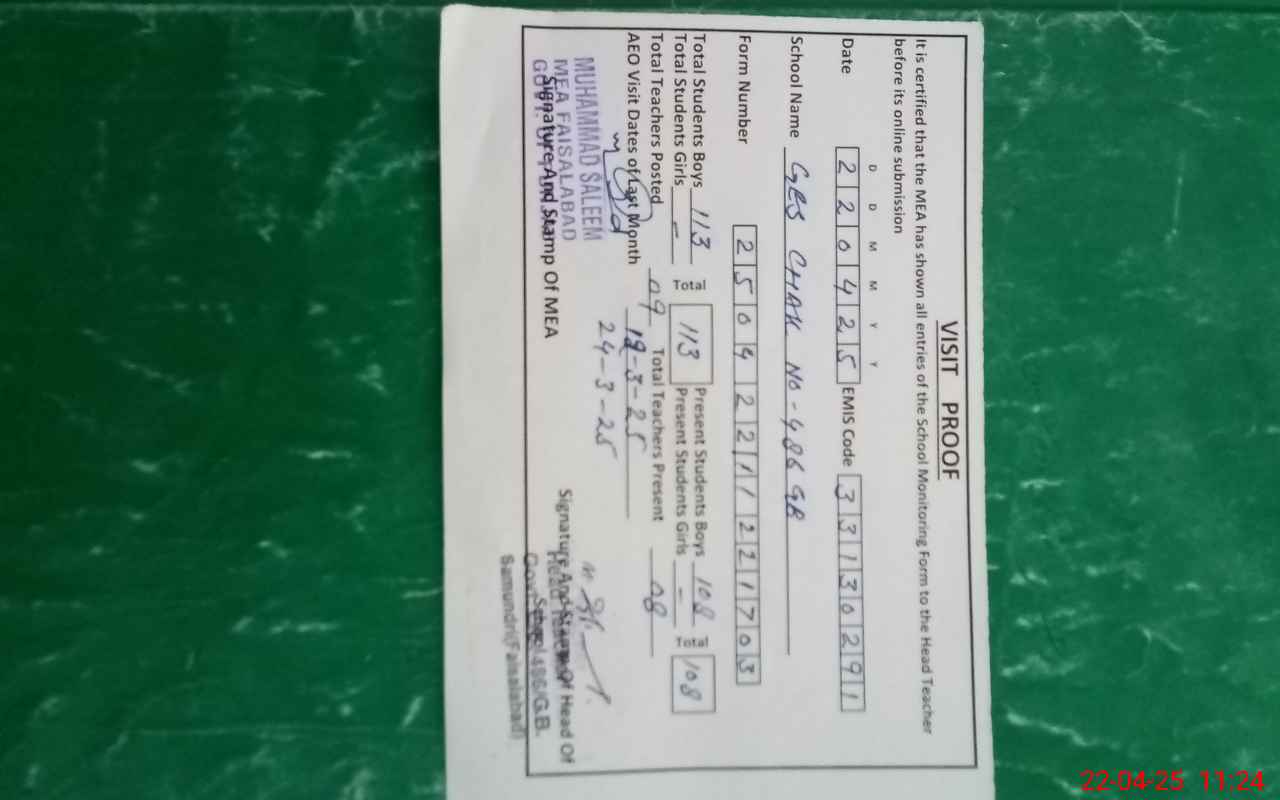 VISIT PROOF
It is certified that the MEA has shown all entries of the School Monitoring Form to the Head Teacher
before its online submission
D D M M Y Y
Date 2 2 0 4 2 5 EMIS Code 3 3 1 3 0 2 9 1
School Name GES CHAK NO-486 GB
Form Number 2 5 0 4 2 2 1 1 2 2 1 7 0 3
Total Students Boys 113 Total 113 Present Students Boys 108 Total 108
Total Students Girls - Present Students Girls -
Total Teachers Posted 09 Total Teachers Present 08
AEO Visit Dates of Last Month 12-3-25
24-3-25
MUHAMMAD SALEEM
MEA FAISALABAD
Signature And Stamp Of MEA
Signature And Stamp Of Head Of
School
486/G.B.
Samundri(Faisalabad)
22-04-25 11:24